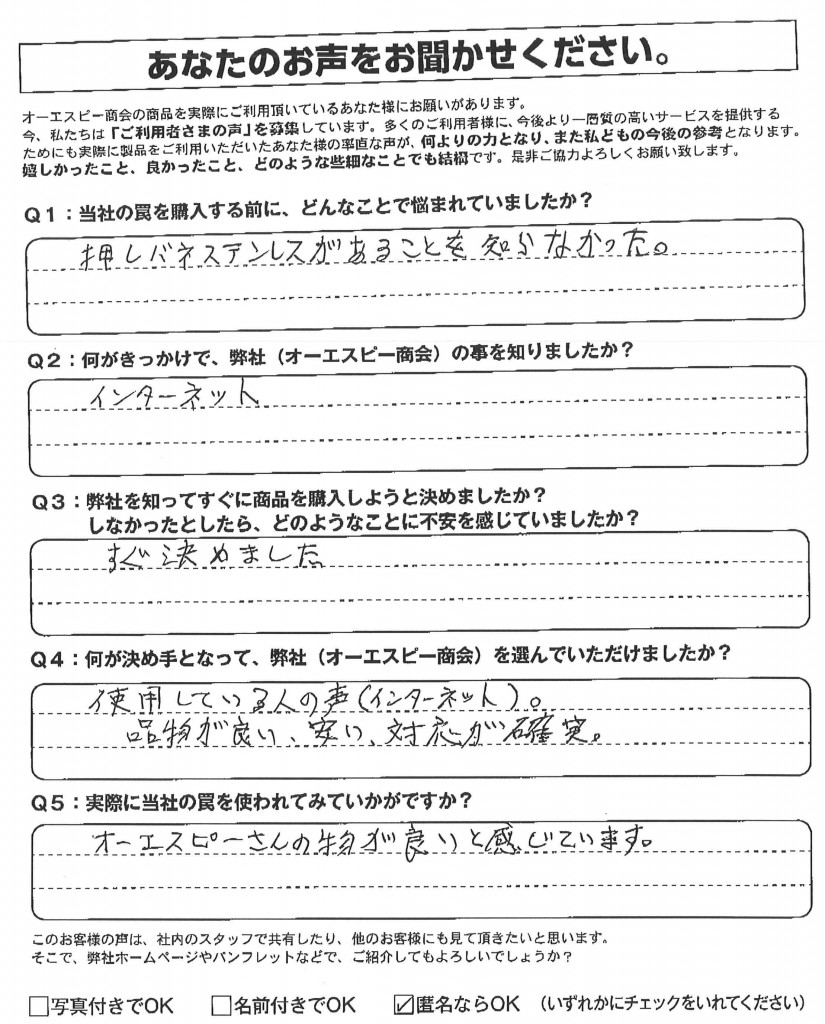 あなたのお声をお聞かせください。
オーエスピー商会の商品を実際にご利用頂いているあなた様にお願いがあります。
今、私たちは「ご利用者さまの声」を募集しています。多くのご利用者様に、今後より一層質の高いサービスを提供する
ためにも実際に製品をご利用いただいたあなた様の率直な声が、何よりの力となり、また私どもの今後の参考となります。
嬉しかったこと、良かったこと、どのような些細なことでも結構です。是非ご協力よろしくお願い致します。
Q1：当社の罠を購入する前に、どんなことで悩まれていましたか？
押しバネステンレスがあることを知らなかった。
Q2：何がきっかけで、弊社（オーエスピー商会）の事を知りましたか？
インターネット
Q3：弊社を知ってすぐに商品を購入しようと決めましたか？
しなかったとしたら、どのようなことに不安を感じていましたか？
すぐ決めました
Q4：何が決め手となって、弊社（オーエスピー商会）を選んでいただけましたか？
使用している人の声（インターネット）。
品物が良い、安い、対応が確実。
Q5：実際に当社の罠を使われてみていかがですか？
オーエスピーさんの物が良いと感じています。
このお客様の声は、社内のスタッフで共有したり、他のお客様にも見て頂きたいと思います。
そこで、弊社ホームページやパンフレットなどで、ご紹介してもよろしいでしょうか？
□写真付きでOK □名前付きでOK ☑匿名ならOK （いずれかにチェックをいれてください）